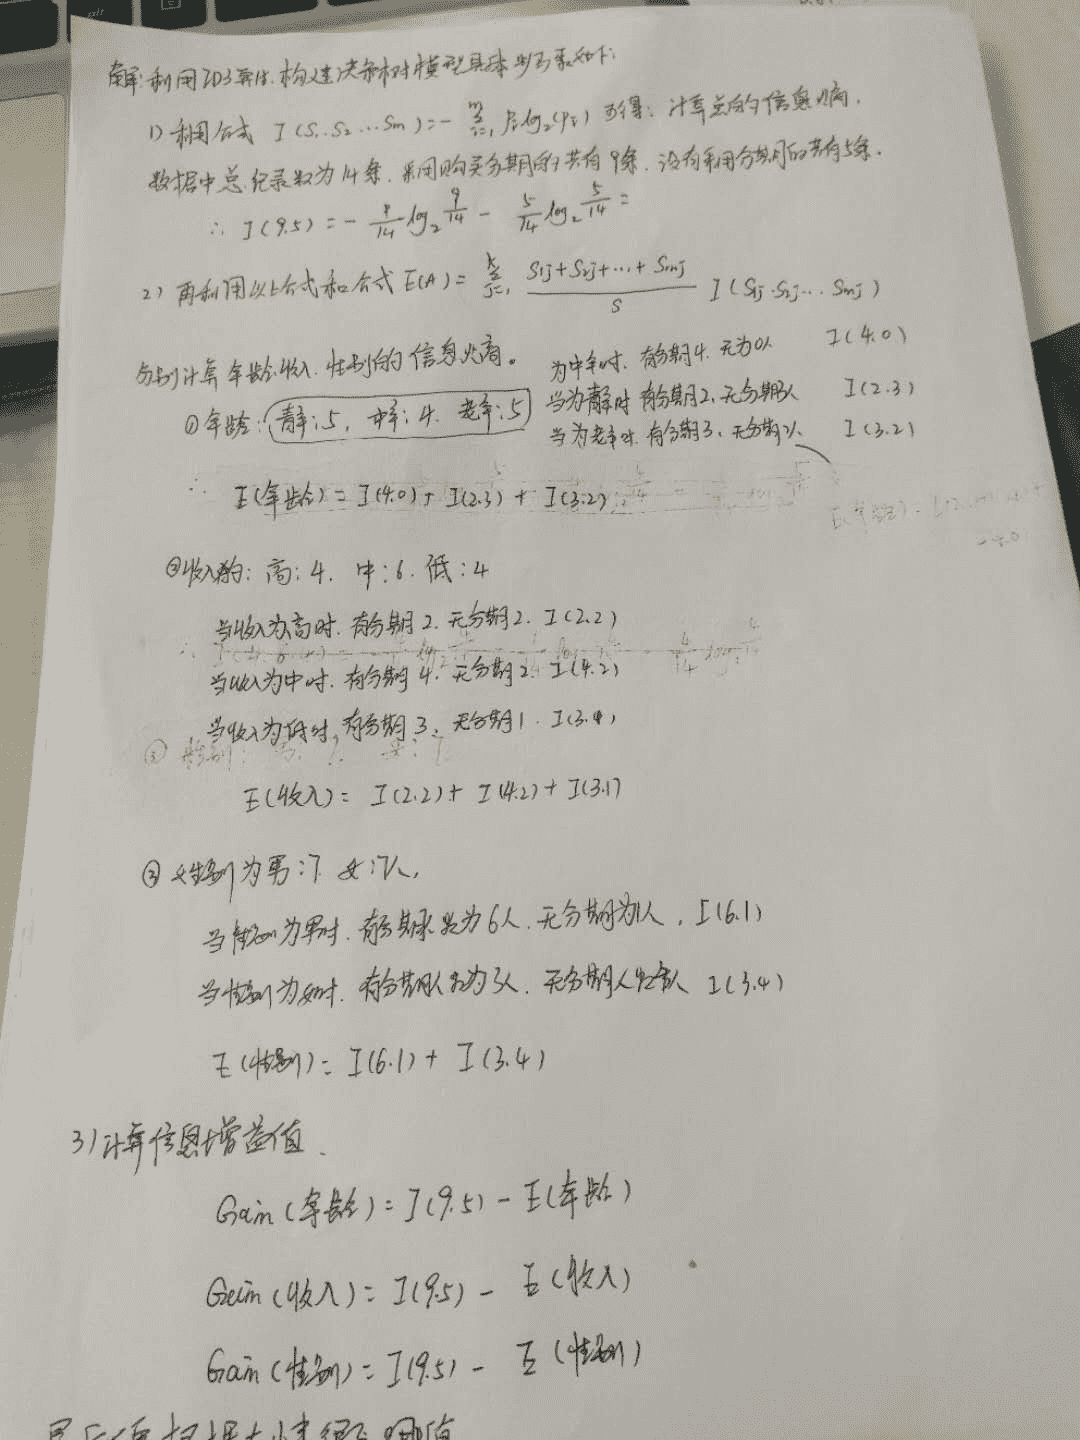 解:利用ID3算法.构建决策树模型具体步骤如下:
1) 利用公式 I(S₁.S₂…Sm)=-∑ᵢ₌₁ᵐ Pᵢlog₂(Pᵢ) 可得:计算总的信息熵,
数据中总纪录数为14条.采用购买分期的共有9条.没有采用分期的共有5条.
∴ I(9.5)=-9/14 log₂ 9/14 - 5/14 log₂ 5/14 =
2) 再利用以上公式和公式E(A)=∑ⱼ₌₁ᵏ (S₁j+S₂j+…+Smj)/S I(S₁j.S₂j…Smj)
分别计算年龄.收入.性别的信息熵。
为中年时.有分期4.无为0人 I(4.0)
①年龄:青年:5, 中年:4. 老年:5
当为青年时 有分期2.无分期3人 I(2.3)
当为老年时.有分期3.无分期2人. I(3.2)
∴ E(年龄)=I(4.0)+I(2.3)+I(3.2)
②收入的:高:4. 中:6. 低:4
当收入为高时.有分期2.无分期2. I(2.2)
当收入为中时.有分期4.无分期2. I(4.2)
当收入为低时.有分期3.无分期1.
E(收入)=I(2.2)+I(4.2)+I(3.1)
③ 性别为男:7. 女:7人.
当性别为男时.有分期 为6人.无分期为1人. I(6.1)
当性别为女时.有分期人数为3人.无分期人数 I(3.4)
E(性别)=I(6.1)+I(3.4)
3)计算信息增益值.
Gain(年龄)=I(9.5)-E(年龄)
Gain(收入)=I(9.5)-E(收入)
Gain(性别)=I(9.5)-E(性别)